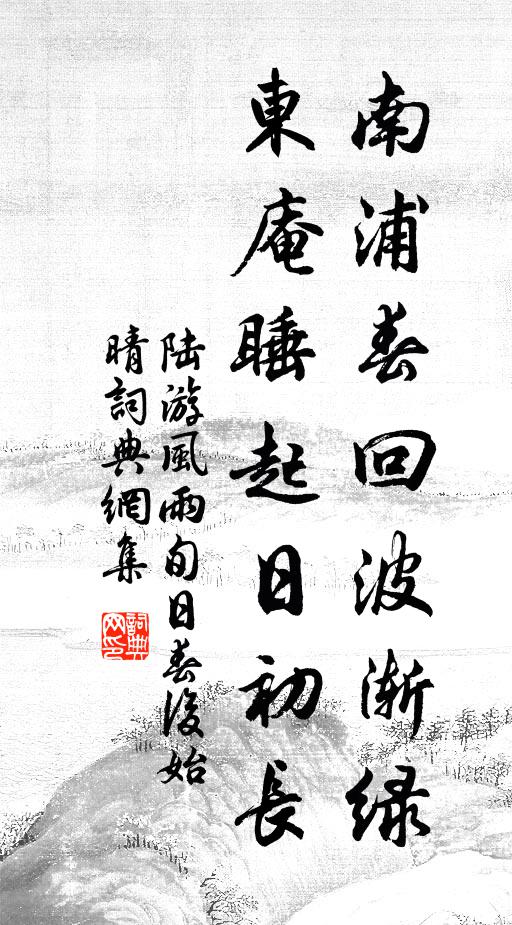 南浦春回波渐绿
東庵睡起日初長
陆游風雨旬日春後始
晴詞典網集
詞典网印